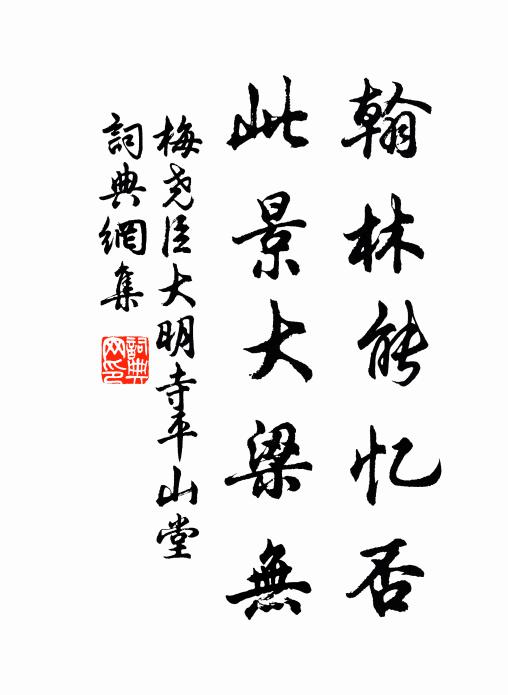 翰林能忆否
此景大梁無
梅尧臣大明寺平山堂
詞典網集
詞典网印